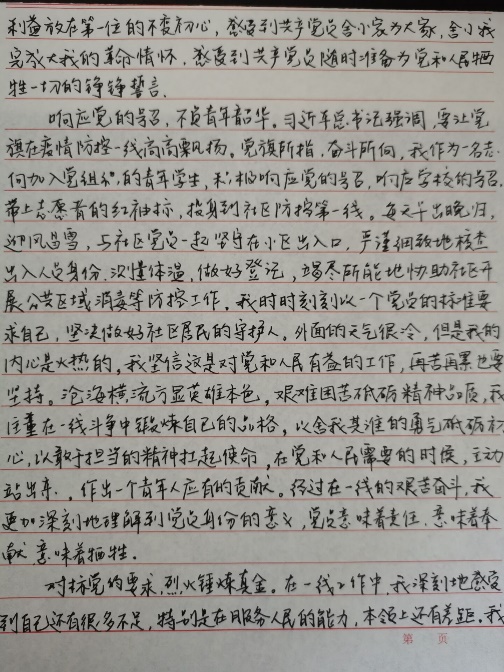 利益放在第一位的不变初心，感受到共产党员舍小家为大家，舍小我
完成大我的革命情怀，感受到共产党员随时准备为党和人民牺
牲一切的铮铮誓言。
响应党的号召，不负青年韶华。习近平总书记强调，要让党
旗在疫情防控一线高高飘扬。党旗所指，奋斗所向，我作为一名志
向加入党组织的青年学生，积极响应党的号召，响应学校的号召
带上志愿者的红袖标，投身到社区防控第一线。每天早出晚归，
迎风冒雪，与社区党员一起坚守在小区出入口，严谨细致地核查
出入人员身份、测量体温，做好登记，竭尽所能地协助社区开
展公共区域消毒等防控工作。我时时刻刻以一个党员的标准要
求自己，坚决做好社区居民的守护人。外面的天气很冷，但是我的
内心是火热的，我坚信这是对党和人民有益的工作，再苦再累也要
坚持。沧海横流方显英雄本色，艰难困苦砥砺精神品质，我
注重在一线斗争中锻炼自己的品格，以舍我其谁的勇气砥砺初
心，以敢于担当的精神扛起使命，在党和人民需要的时候，主动
站出来，作出一个青年人应有的贡献。经过在一线的艰苦奋斗，我
更加深刻地理解到党员身份的意义，党员意味着责任、意味着奉
献、意味着牺牲。
对标党的要求，烈火锤炼真金。在一线工作中，我深刻地感受
到自己还有很多不足，特别是在服务人民的能力、本领上还有差距。我
第 页